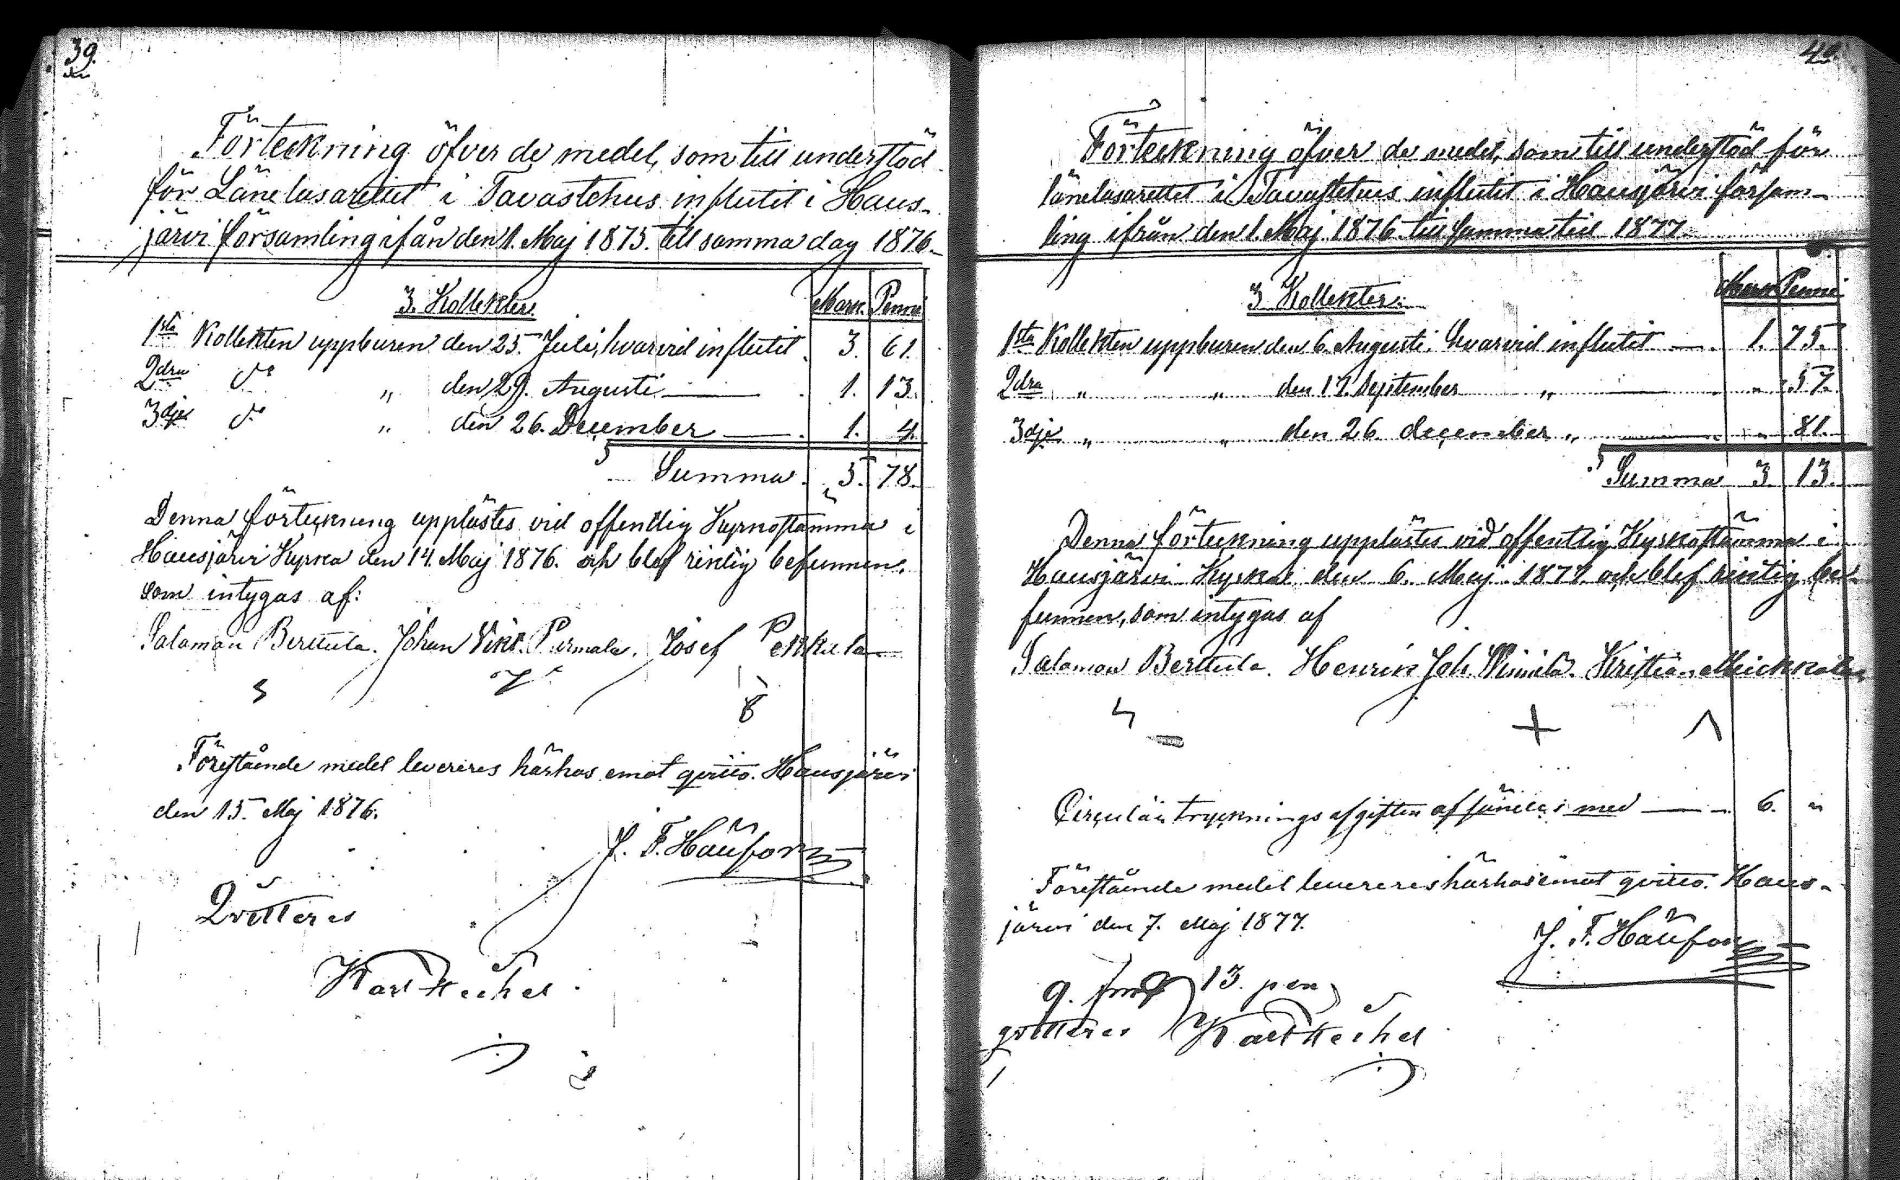 39.
Förteckning öfver de medel, som till understöd
för Länelasarettet i Tavastehus influtit i Haus-
järvi församling ifrån den 1. Maj 1875. till samma dag 1876.
3. Kollekter. Mark. Penni
1sta Kollekten uppburen den 25. Juli, hvarvid influtit 3. 61.
2dra do " den 29. Augusti — 1. 13.
3dje do " den 26. December — 1. 4.
Summa 5. 78.
Denna förteckning upplästes vid offentlig Kyrkostämma i
Hausjärvi Kyrka den 14. Maj 1876. och blef riktig befunnen.
som intygas af:
Salomon Berttula. Johan Vikt. Purmala. Josef Pekkula
Förestående medel levereres härhos emot qvitto. Hausjärvi
den 15. Maj 1876.
J. F. Häufor
Qvitteres
Karl
40.
Förteckning öfver de medel, som till understöd för
länelasarettet i Tavastehus influtit i Hausjärvi försam-
ling ifrån den 1. Maj 1876 till samma tid 1877.
3 Kollekter. Mark Penni
1sta Kollekten uppburen den 6. Augusti. hvarvid influtit — 1. 75.
2dra " " den 17. September " — " 57.
3dje " " den 26. december " — " 81.
Summa 3. 13.
Denna förteckning upplästes vid offentlig Kyrkostämma i
Hausjärvi Kyrka den 6. Maj 1877. och blef riktig be-
funnen, som intygas af
Salomon Berttula. Henrik Joh. Kristian
Circulär tryckningsafgiften afsändes med — 6. "
Förestående medel levereres härhos emot qvitto. Haus-
järvi den 7. Maj 1877.
J. F. Häufor
9. fmk 13. pen
qvitteres Karl